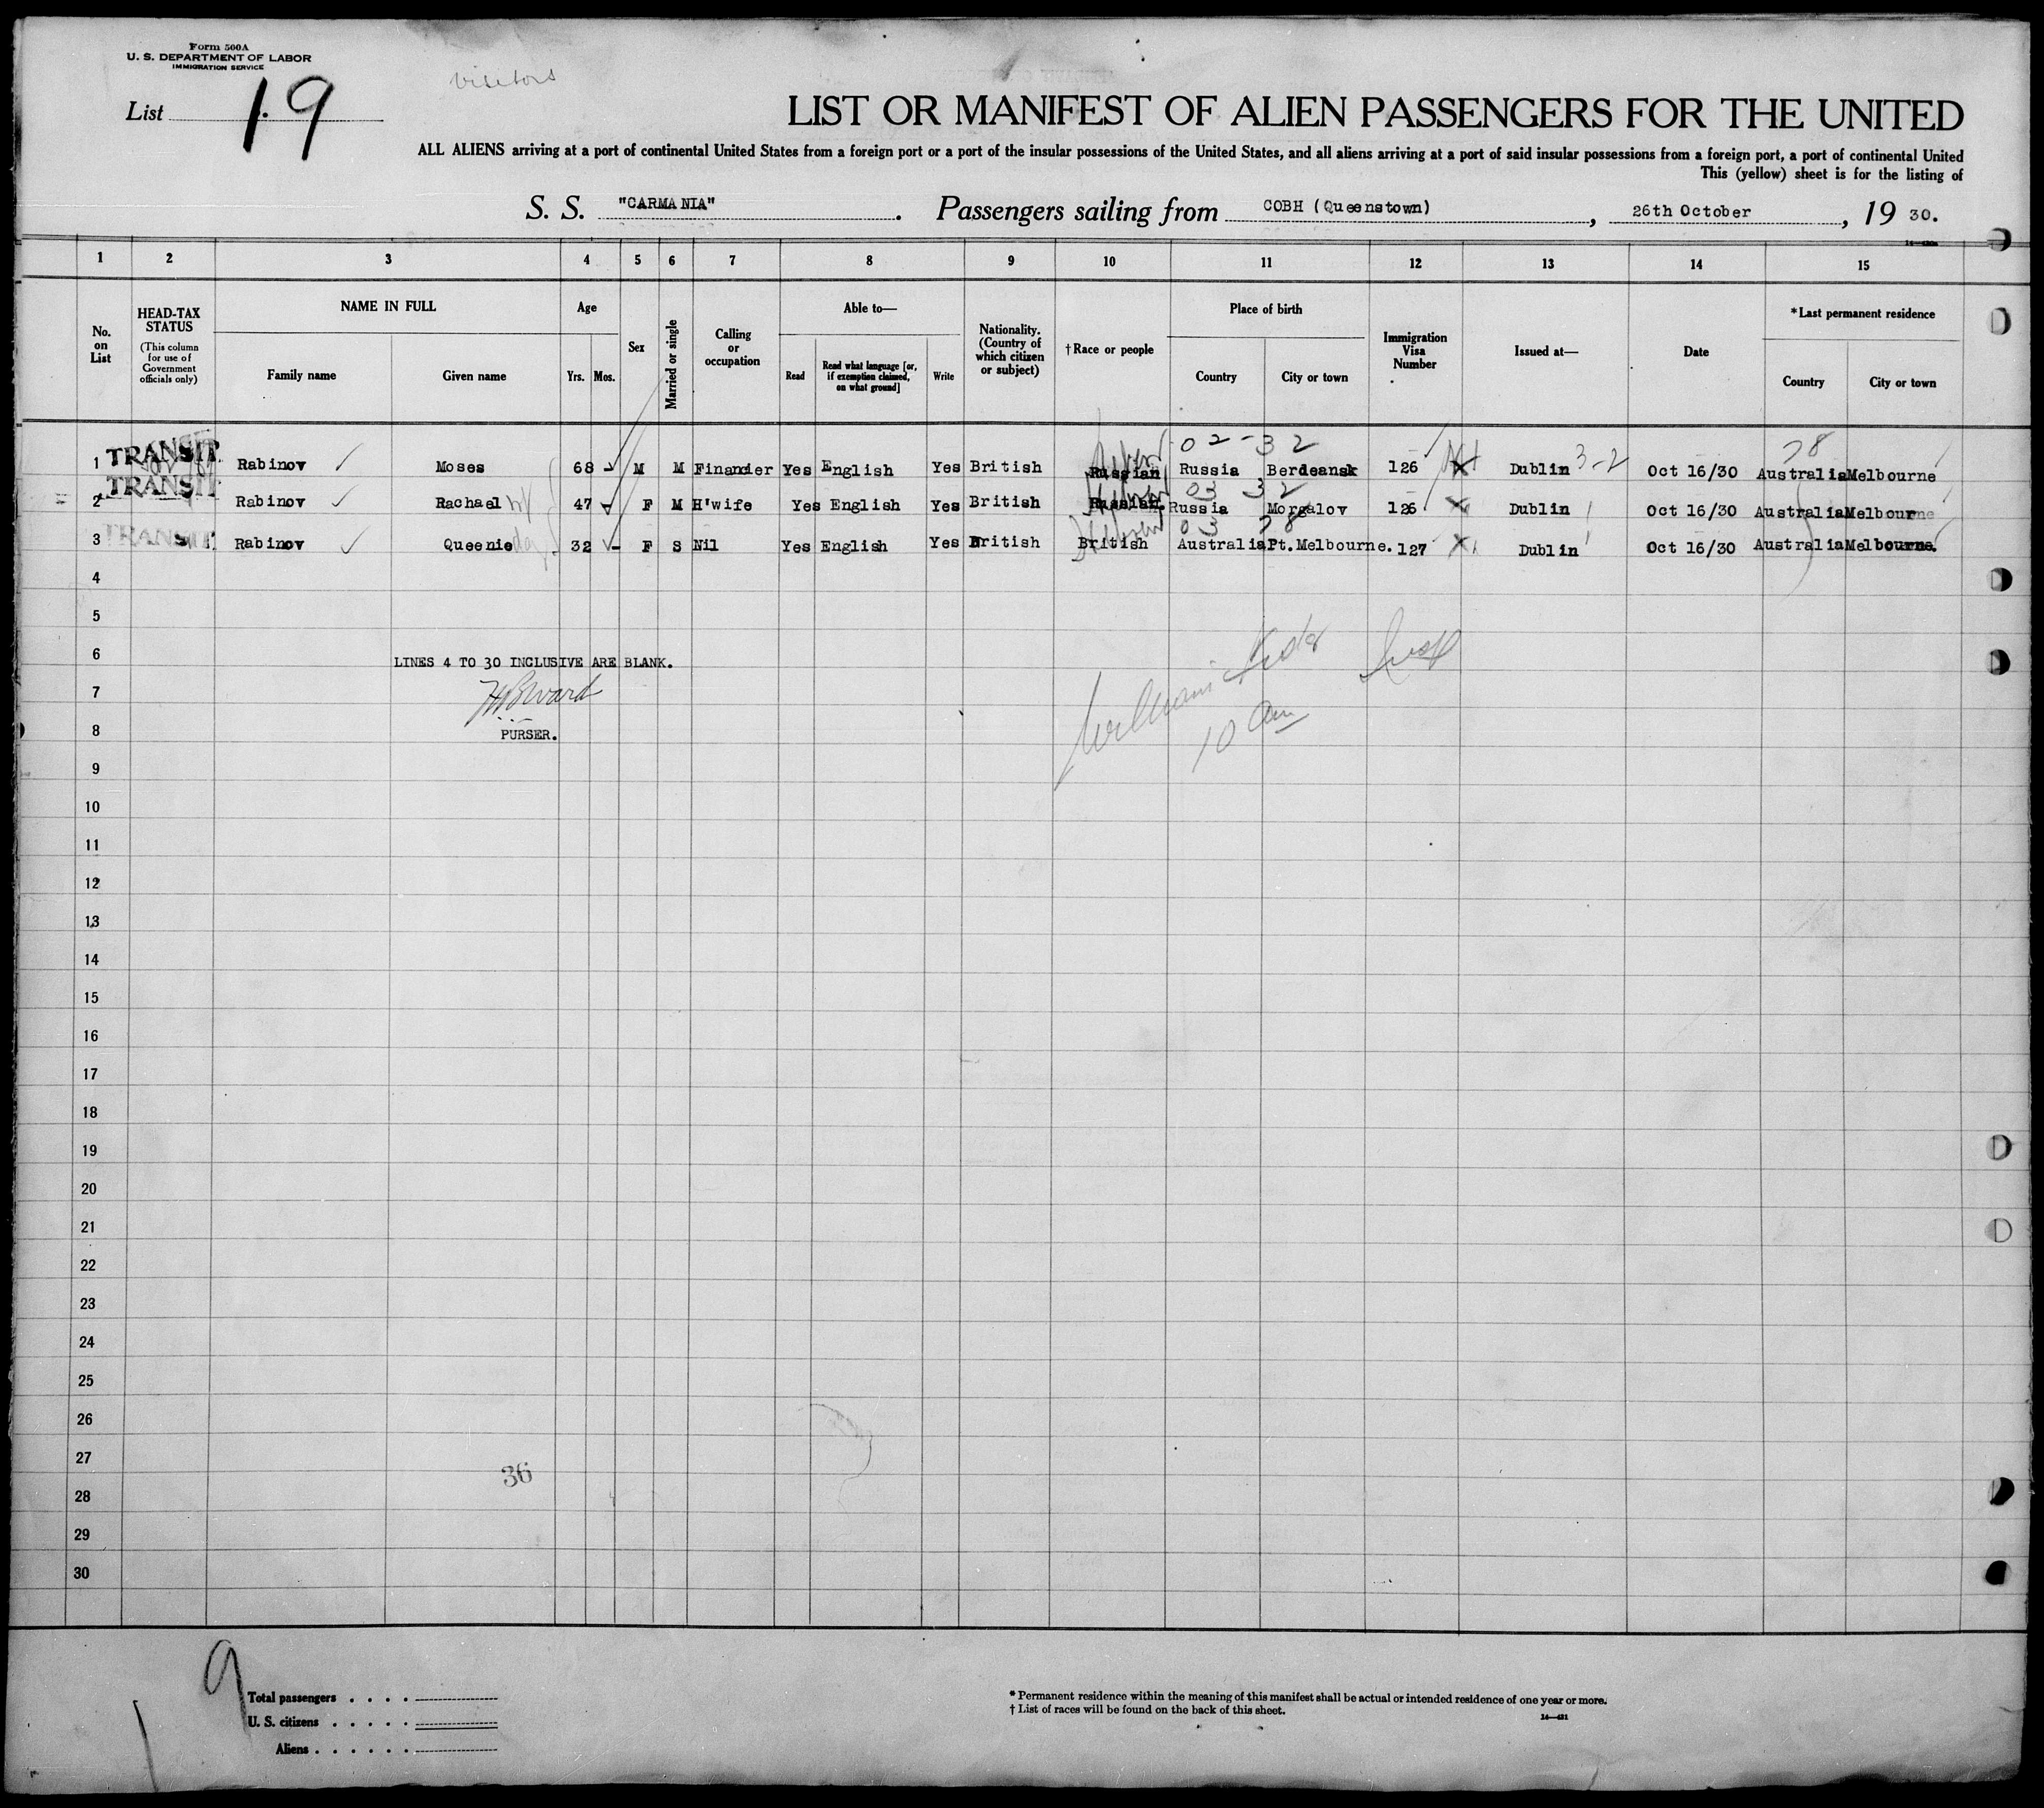 Form 500A
U. S. DEPARTMENT OF LABOR
IMMIGRATION SERVICE
visitors
List 19
LIST OR MANIFEST OF ALIEN PASSENGERS FOR THE UNITED
ALL ALIENS arriving at a port of continental United States from a foreign port or a port of the insular possessions of the United States, and all aliens arriving at a port of said insular possessions from a foreign port, a port of continental United
This (yellow) sheet is for the listing of
S. S. "CARMANIA". Passengers sailing from COBH (Queenstown), 26th October, 19 30.
1 2 3 4 5 6 7 8 9 10 11 12 13 14 15
No. on List
HEAD-TAX STATUS
(This column for use of Government officials only)
NAME IN FULL
Family name Given name
Age
Yrs. Mos.
Sex
Married or single
Calling or occupation
Able to—
Read Read what language [or, if exemption claimed, on what ground] Write
Nationality. (Country of which citizen or subject)
†Race or people
Place of birth
Country City or town
Immigration Visa Number
Issued at—
Date
*Last permanent residence
Country City or town
02-32 78
1 TRANSIT Rabinov Moses 68 M M Financier Yes English Yes British Russian Russia Berdeansk 126 Dublin 3-2 Oct 16/30 Australia Melbourne
03 32
2 TRANSIT Rabinov Rachael 47 F M H'wife Yes English Yes British Russian. Russia Morgalov 126 Dublin Oct 16/30 Australia Melbourne
03 78
3 TRANSIT Rabinov Queenie 32 F S Nil Yes English Yes British British Australia Pt. Melbourne. 127 Dublin Oct 16/30 Australia Melbourne.
4
5
6 LINES 4 TO 30 INCLUSIVE ARE BLANK.
7
8 PURSER.
10 am
9
10
11
12
13
14
15
16
17
18
19
20
21
22
23
24
25
26
27
36
28
29
30
9
Total passengers . . . .
U. S. citizens . . . . .
Aliens . . . . . .
* Permanent residence within the meaning of this manifest shall be actual or intended residence of one year or more.
† List of races will be found on the back of this sheet.
14—421